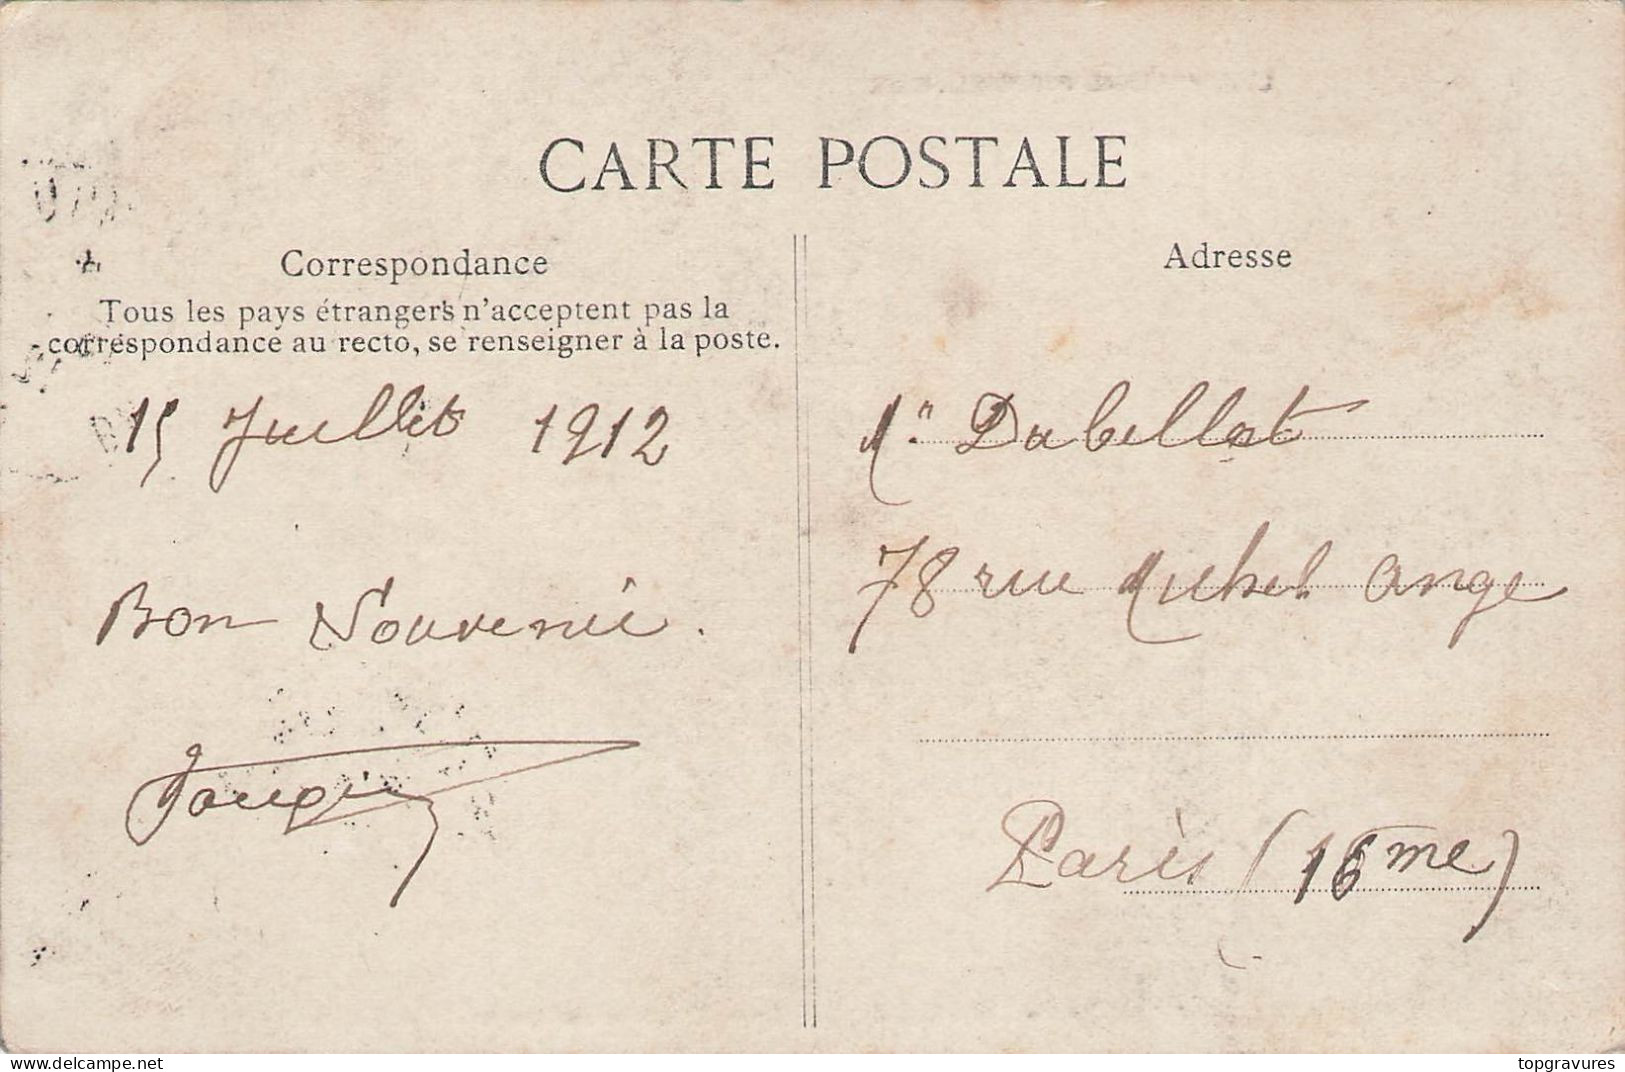 CARTE POSTALE
Correspondance
Tous les pays étrangers n'acceptent pas la
correspondance au recto, se renseigner à la poste.
15 Juillet 1912
Bon Souvenir.
Adresse
Dubillot
78 rue Michel Ange
Paris (16me)
topgravures